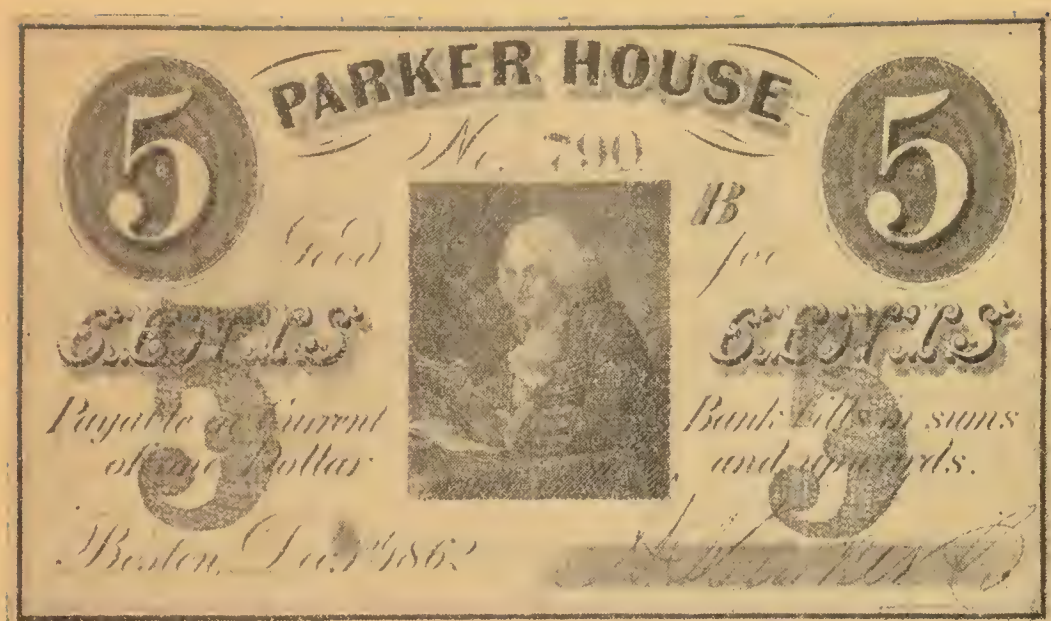 5 PARKER HOUSE 5
No. 790
B
Good for
CENTS CENTS
5 5
Payable in Current Bank bills in sums
of one Dollar and upwards.
Boston, Dec. 1862